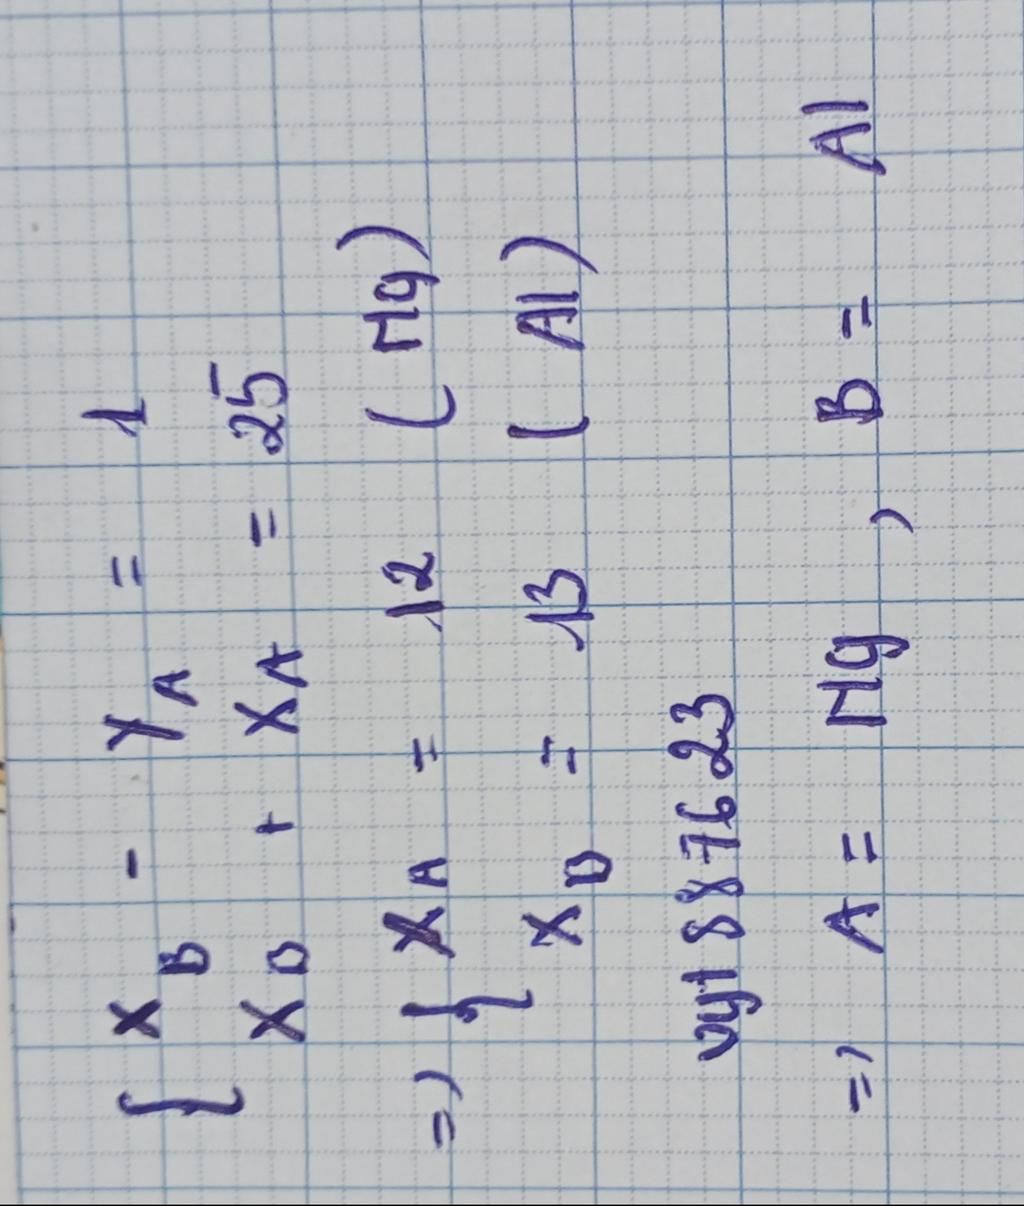 { X_B - X_A = 1
X_D + X_A = 25
=> { X_A = 12 (Mg)
X_D = 13 (Al)
vy1 8 8 76 23
=> A = Mg , B = Al